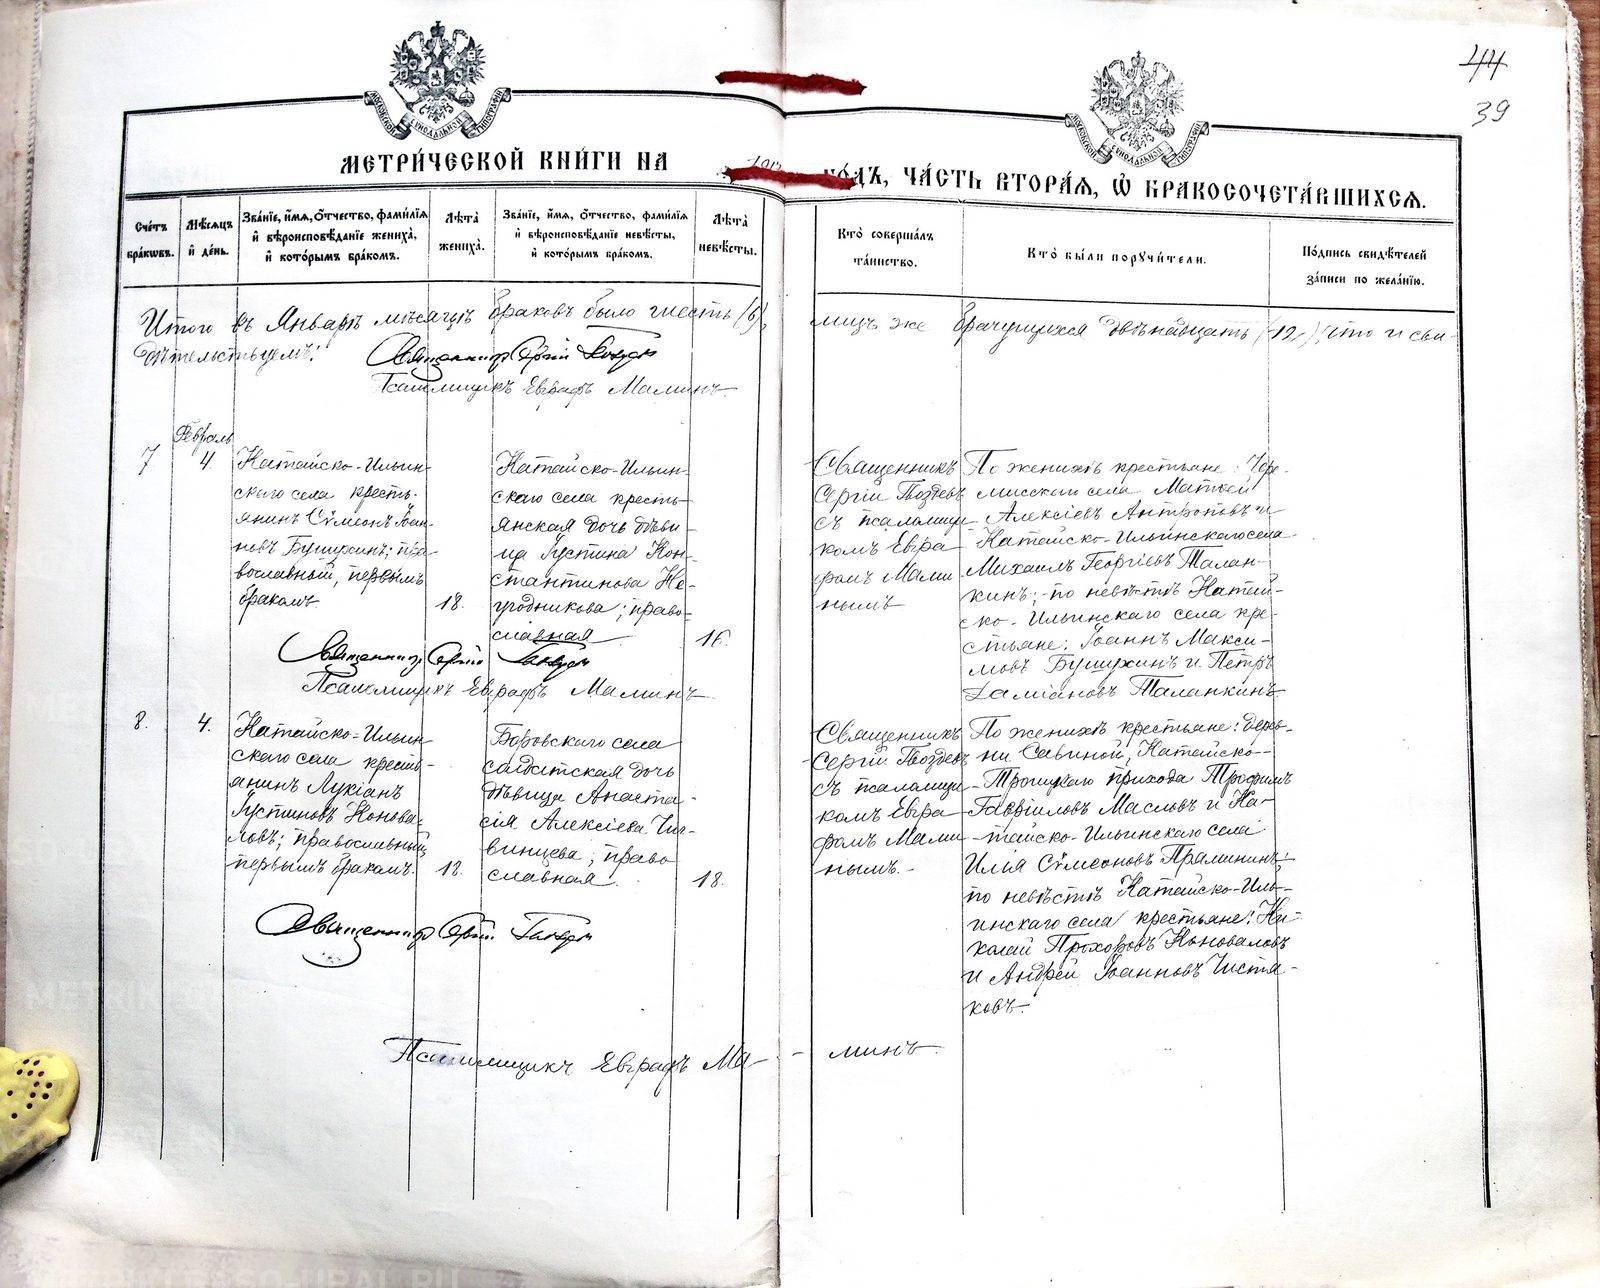 44
39
МОСКОВСКОЙ СѴНОДАЛЬНОЙ ТИПОГРАФІИ
МОСКОВСКОЙ СѴНОДАЛЬНОЙ ТИПОГРАФІИ
МЕТРИ́ЧЕСКОЙ КНИ́ГИ НА
го́дъ, ЧА́СТЬ ВТОРА́Я, Ѡ҆ БРАКОСОЧЕТА́ВШИХСЯ.
Сче́тъ
бра́кѡвъ.
Мѣ́сяцъ
и҆ де́нь.
Зва́нїе, и҆́мя, ѻ҆́тчество, фами́лїя
и҆ вѣроисповѣ́данїе жениха̀,
и҆ кото́рымъ бра́комъ.
Лѣ́та
жениха̀.
Зва́нїе, и҆́мя, ѻ҆́тчество, фами́лїя
и҆ вѣроисповѣ́данїе невѣ́сты,
и҆ кото́рымъ бра́комъ.
Лѣ́та
невѣ́сты.
Кто̀ соверша́лъ
та́инство.
Кто̀ бы́ли порꙋчи́тели.
По́дпись свидѣ́телей
за́писи по жела́нїю.
Итого въ Январѣ мѣсяцѣ браковъ было шесть (6),
лицъ же брачущихся двѣнадцать (12), что и сви-
дѣтельствуемъ:
Священникъ Сергій Гвоздевъ
Псаломщикъ Евграфъ Маминъ
7
Февраль
4.
Катайско-Ильин-
скаго села кресть-
янинъ Сѵмеонъ Іоан-
новъ Бушухинъ; пра-
вославный, первымъ
бракомъ
18.
Катайско-Ильин-
скаго села кресть-
янская дочь дѣви-
ца Іустина Кон-
стантинова
право-
славная
16.
Священникъ
Сергій Гвоздевъ
съ псаломщи
комъ Евгра
фомъ Мами
нымъ
По женихѣ крестьяне:
села Матѳей
Алексіевъ Антроповъ и
Катайско-Ильинскаго села
Михаилъ Георгіевъ Талан-
кинъ; по невѣстѣ Катай-
ско-Ильинскаго села кре-
стьяне: Іоаннъ Макси-
мовъ Бушухинъ и Петръ
Даміановъ Таланкинъ
Священникъ Сергій Гвоздевъ
Псаломщикъ Евграфъ Маминъ
8.
4.
Катайско-Ильин
скаго села кресть-
янинъ Лукіанъ
Іустиновъ Конова-
ловъ; православный,
первымъ бракомъ.
18.
Боровскаго села
солдатская дочь
дѣвица Анаста-
сія Алексіева Чиг-
винцева; право
славная.
18.
Священникъ
Сергій Гвоздевъ
съ псаломщи
комъ Евгра
фомъ Мами
нымъ.
По женихѣ крестьяне: дерев-
ни Савиной, Катайско-
Троицкаго прихода Трофимъ
Гавріиловъ Масловъ и Ка-
тайско-Ильинскаго села
Илія Сѵмеоновъ
по невѣстѣ Катайско-Иль-
инскаго села крестьяне: Ни-
колай Прохоровъ Коноваловъ
и Андрей Іоанновъ Чистя-
ковъ.
Священникъ Сергій Гвоздевъ
Псаломщикъ Евграфъ Ма-
минъ